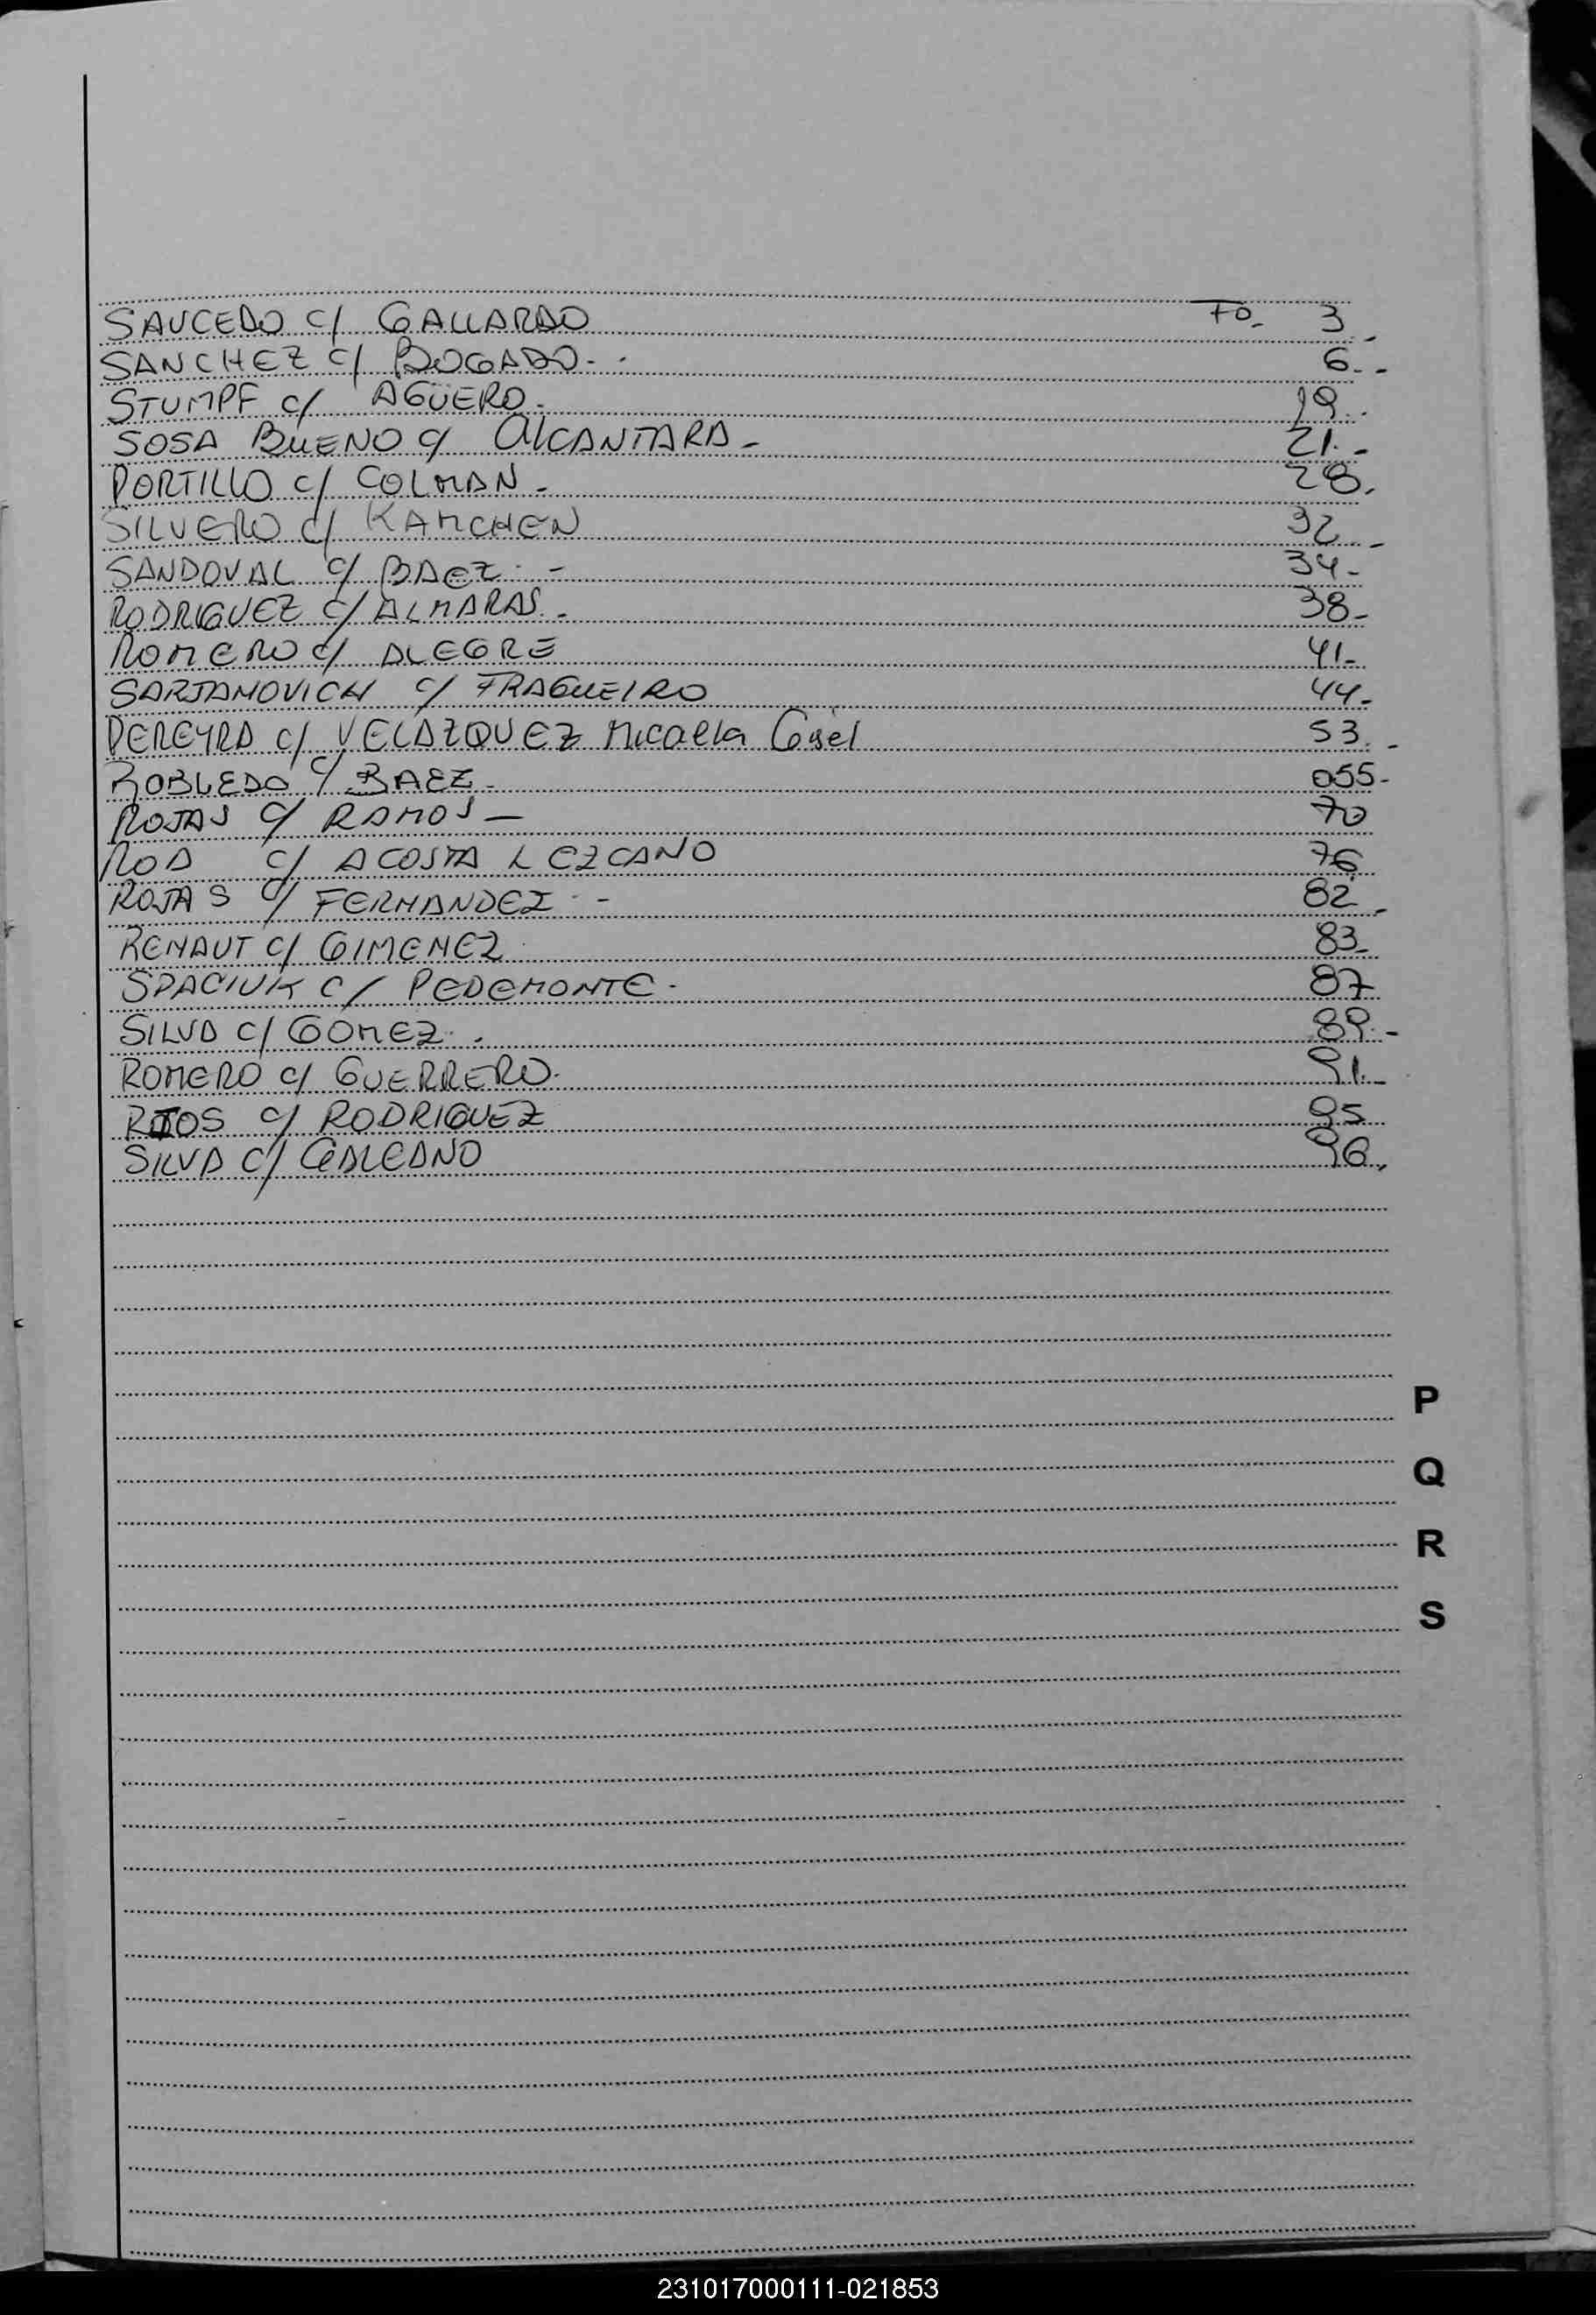 SAUCEDO c/ GALLARDO Fo. 3.-
SANCHEZ c/ BOGADO.-. 6.-
STUMPF c/ AGÜERO.- 19.
SOSA BUENO c/ ALCANTARA- 21.-
PORTILLO c/ COLMAN.- 28.
SILVERO c/ KAMCHEN 32.-
SANDOVAL c/ BAEZ.- 34-
RODRIGUEZ c/ ALMARAS.- 38-
ROMERO c/ ALEGRE 41-
SARJANOVICH c/ FRAGUEIRO 44-
PEREYRA c/ VELAZQUEZ Micaela Gisel 53.-
ROBLEDO c/ BAEZ- 055-
ROJAS c/ RAMOS- 70
ROA c/ ACOSTA LEZCANO 76
ROJAS c/ FERNANDEZ.- 82.-
RENAUT c/ GIMENEZ 83-
SPACIUK c/ PEDEMONTE.- 87
SILVA c/ GOMEZ. 89.-
ROMERO c/ GUERRERO. 91.-
c/ RODRIGUEZ 95
SILVA c/ GALEANO 96.
P
Q
R
S
231017000111-021853